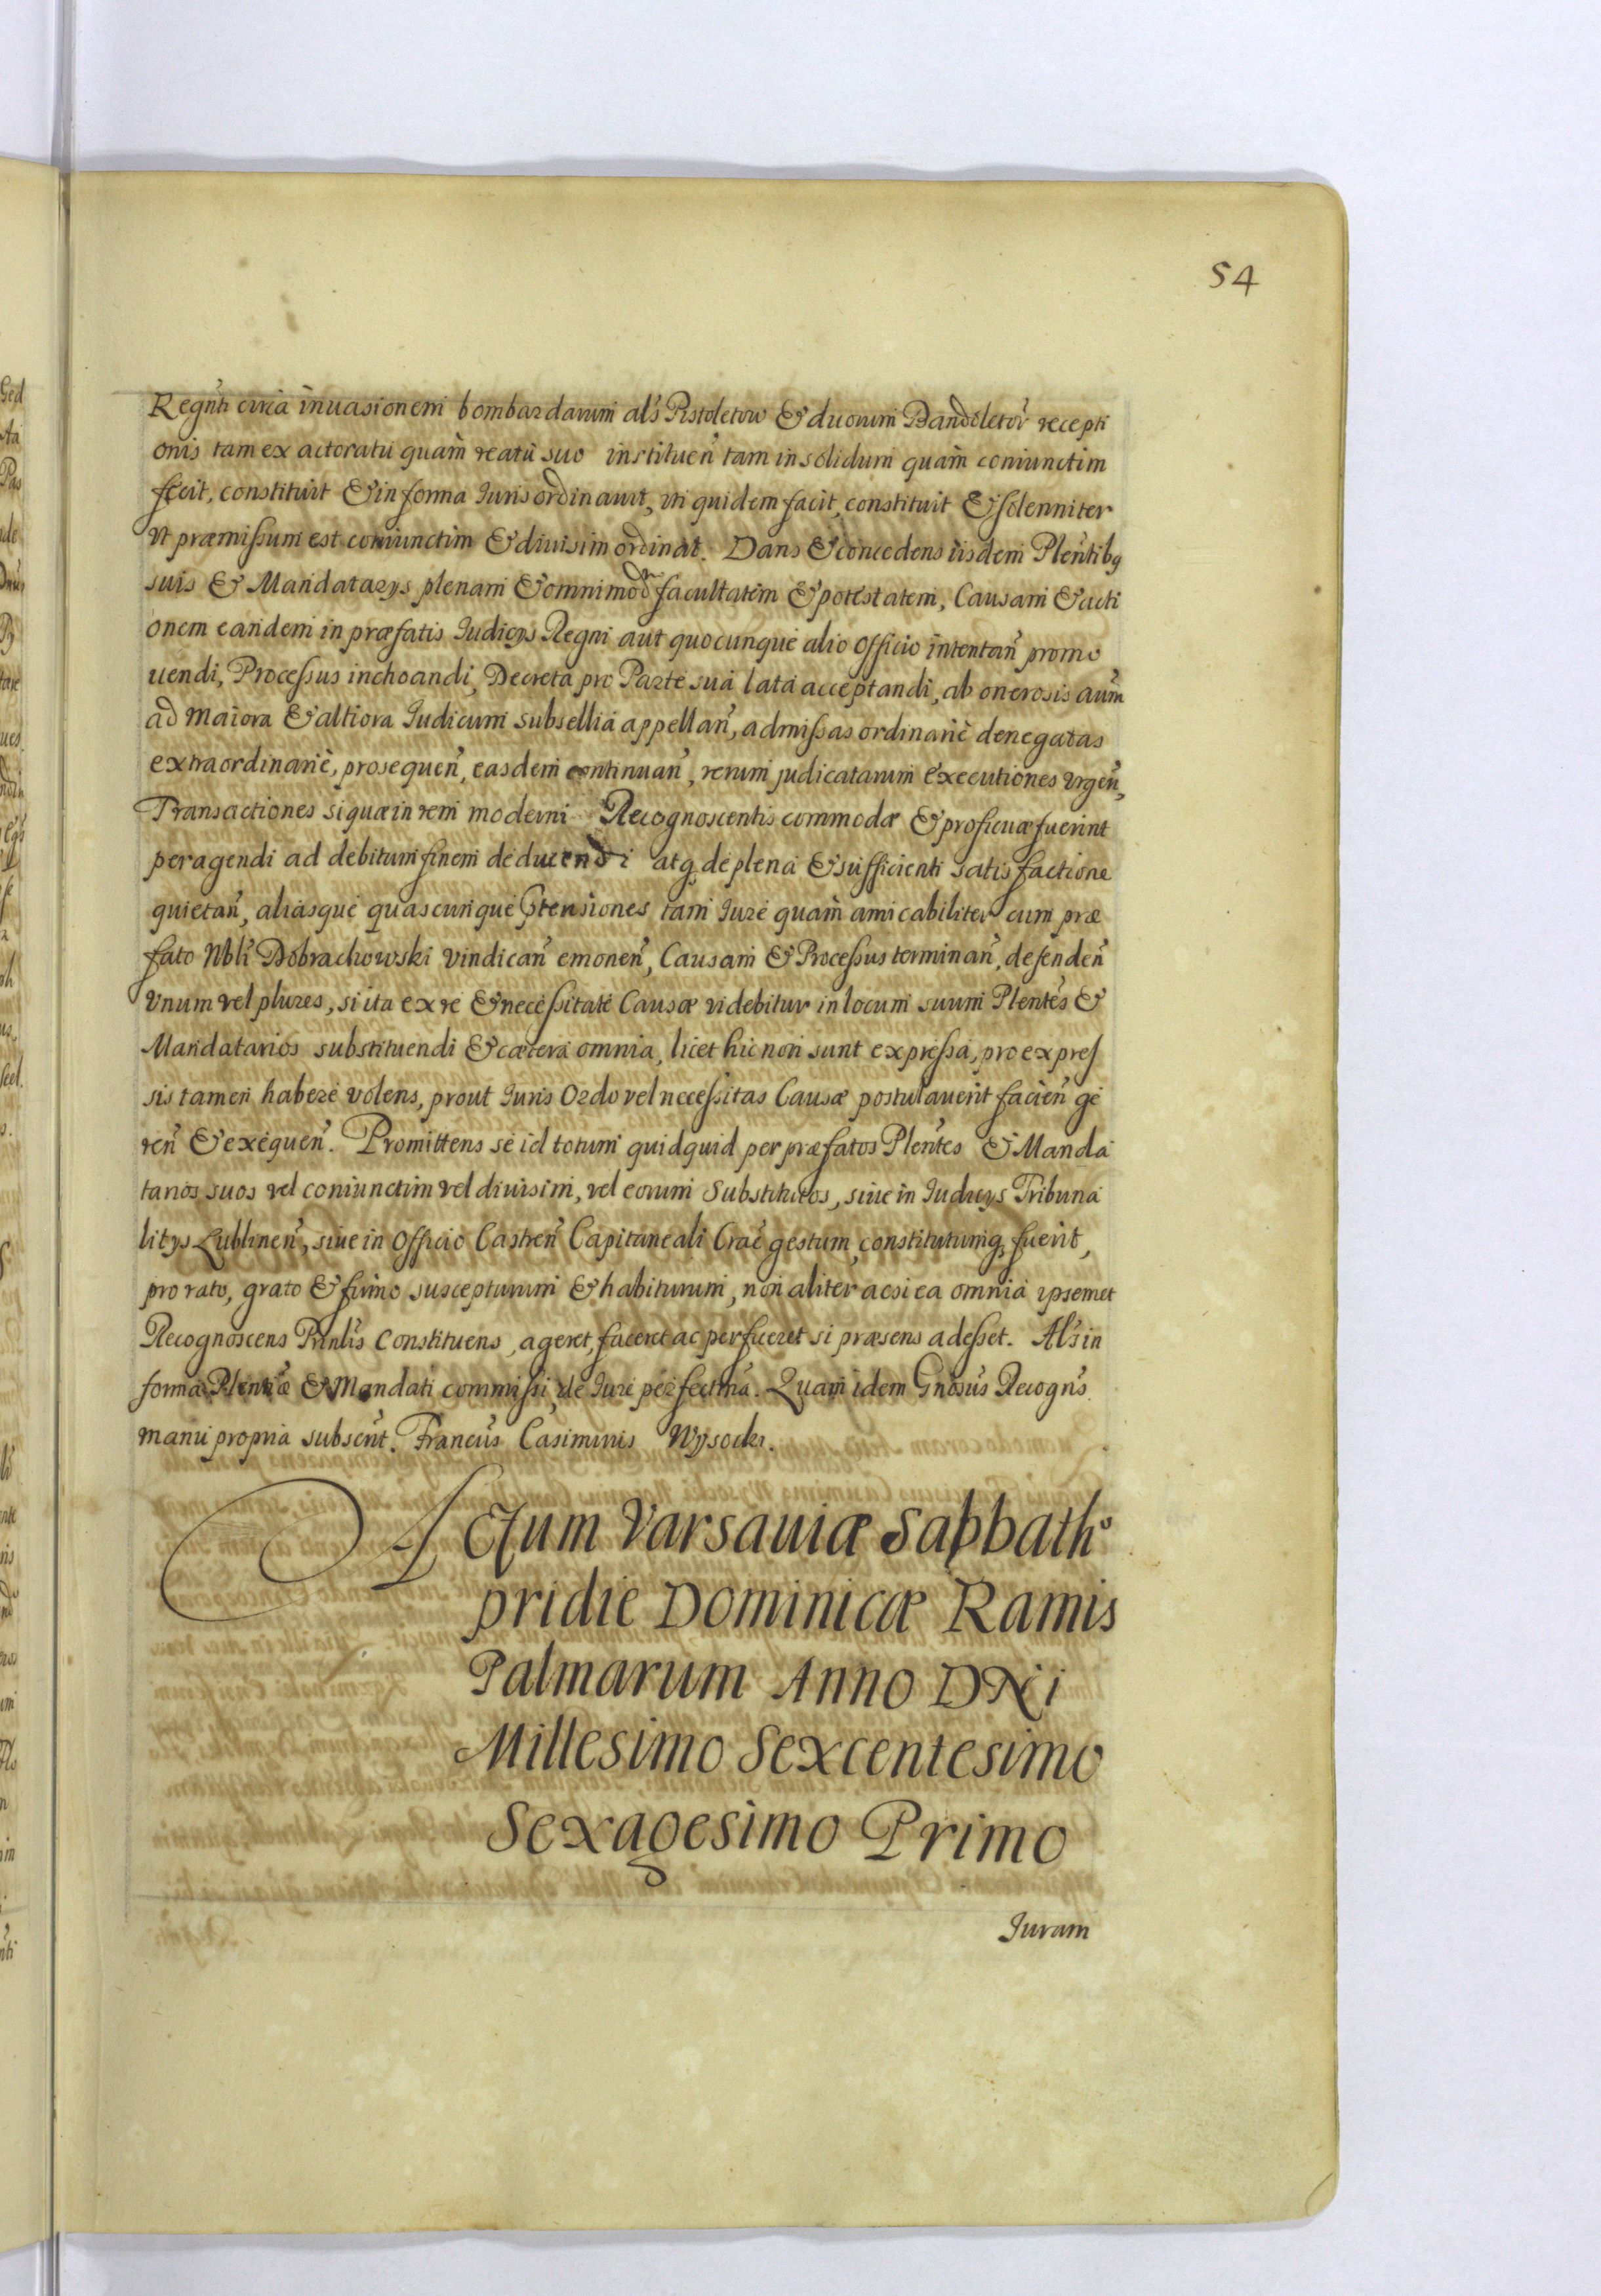 54
Regn̄ti circa inuasionem bombardarum al̄s Pistoletow & duorum Bandoletor̄ recepti
onis tam ex actoratu quam reatu suo instituen̄ tam in solidum quam coniunctim
fecit, constituit & in forma Iuris ordinauit, uti quidem facit, constituit & solenniter
vt præmissum est coniunctim & diuisim ordinat. Dans & concedens iisdem Plen̄tibq
suis & Mandatarys plenam & omnimodam facultatem & potestatem, Causam & acti
onem eandem in præfatis Iudicys Regni aut quocunque alio Officio intentan̄ promo
uendi, Processus inchoandi, Decreta pro Parte sua lata acceptandi, ab onerosis aūm
ad maiora & altiora Iudicum subsellia appellan̄, admissas ordinariè denegatas
extraordinariè, prosequen̄, easdem continuan̄, rerum judicatarum executiones vrgen̄,
Transactiones si quæ in rem moderni Recognoscentis commodæ & proficuæ fuerint
peragendi ad debitum finem deducendi atq, de plena & sufficienti satisfactione
quietan̄, aliasque quascunque p̄tensiones tam Iure quam amicabiliter cum præ
fato Nbli Dobrachowski vindican̄ emonen̄, Causam & Processus terminan̄, defenden̄
vnum vel plures, si ita ex re & necessitate Causæ videbitur in locum suum Plen̄tes &
Mandatarios substituendi & cætera omnia, licet hic non sunt expressa, pro expres
sis tamen habere volens, prout Iuris Ordo vel necessitas Causæ postulauerit facien̄ ge
ren̄ & exequen̄. Promittens se id totum quidquid per præfatos Plen̄tes & Manda
tarios suos vel coniunctim vel diuisim, vel eorum Substitutos, siue in Iudicys Tribuna
litys Lublinen̄, siue in Officio Castren̄ Capitaneali Crac̄ gestum, constitutumq, fuerit,
pro rato, grato & firmo suscepturum & habiturum, non aliter acsi ea omnia ipsemet
Recognoscens Prīnlis Constituens, ageret, faceret ac perficeret si præsens adesset. Al̄s in
forma Plen̄tiæ & Mandati commissi, de Iure perfectma. Quam idem Gnōsus Recogn̄s
manu propria subscr̄t. Francūs Casimirus Wysocki.
Actum Varsauiæ Sabbatho
pridie Dominicæ Ramis
Palmarum Anno DNi
Millesimo Sexcentesimo
Sexagesimo Primo
Juram